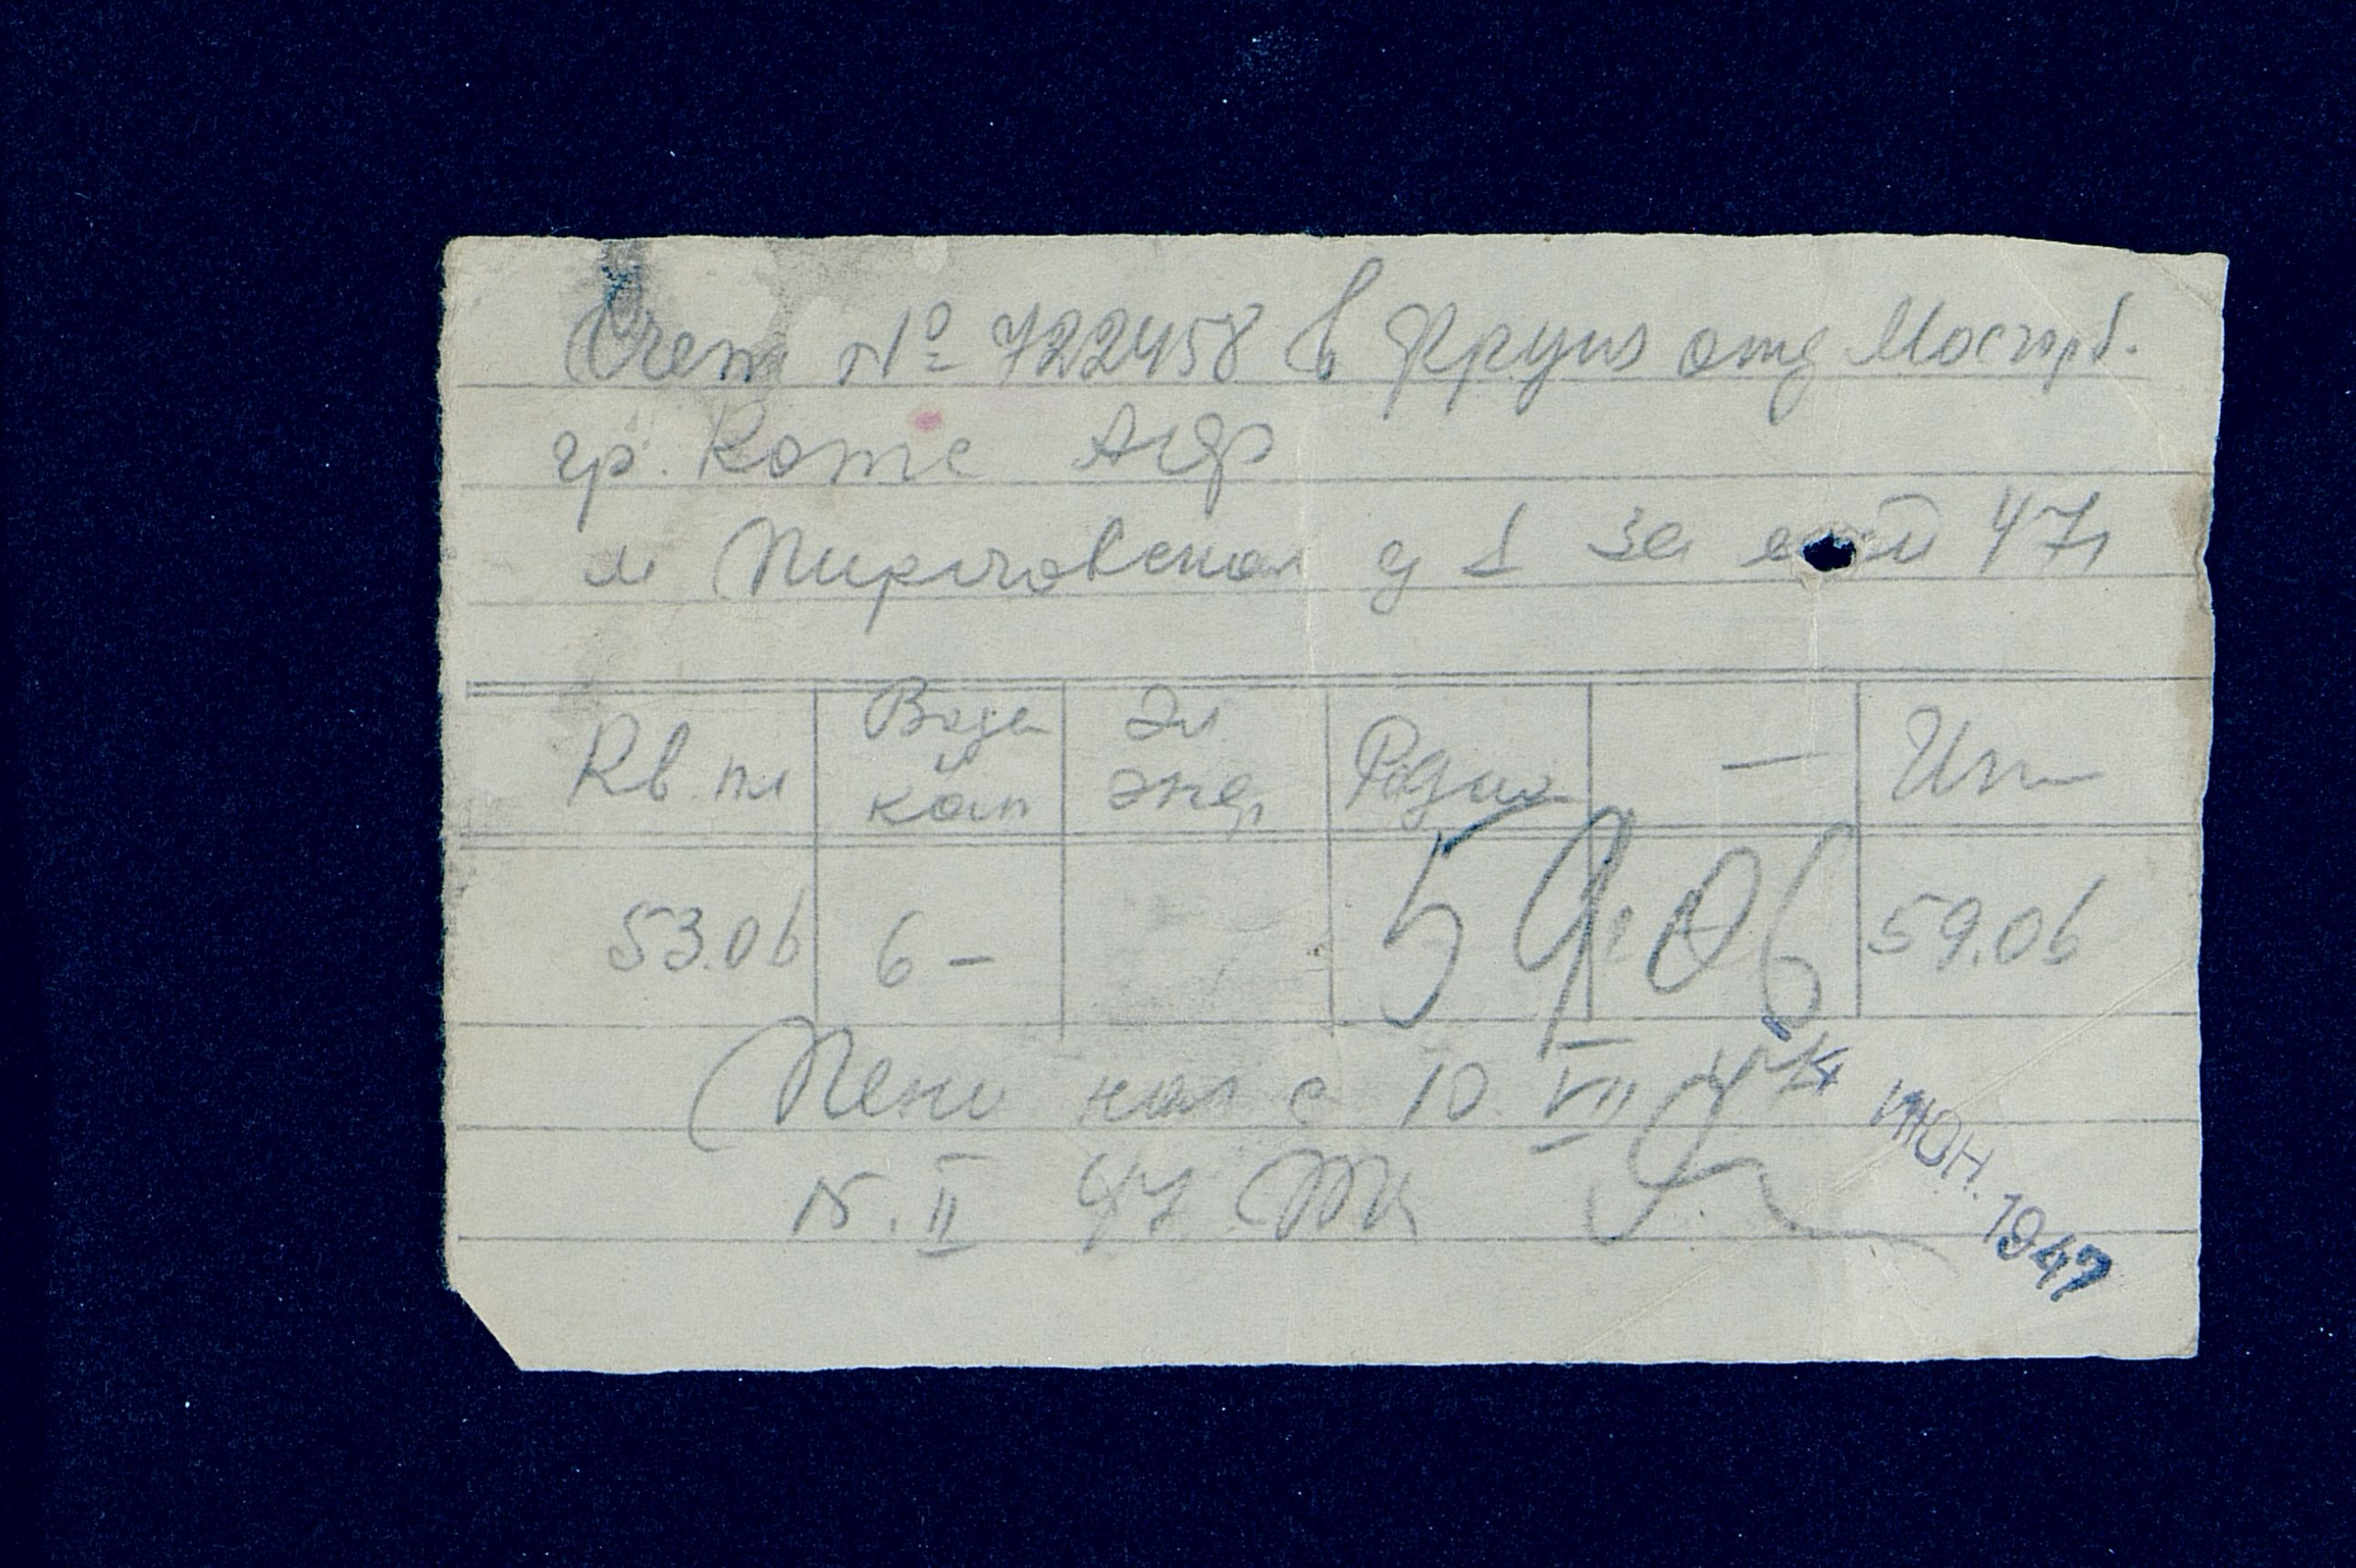 Счет № 722458 в Фрунз отд Мосгорб.
гр. Котс
м Пироговская д 1 за май 47г
Кв. пл Вода кан Эл энер Радио — Ит
53.06 6 - 59.06 59.06
Пени нач с 10 VII 47
15. II 47
ИЮН. 1947